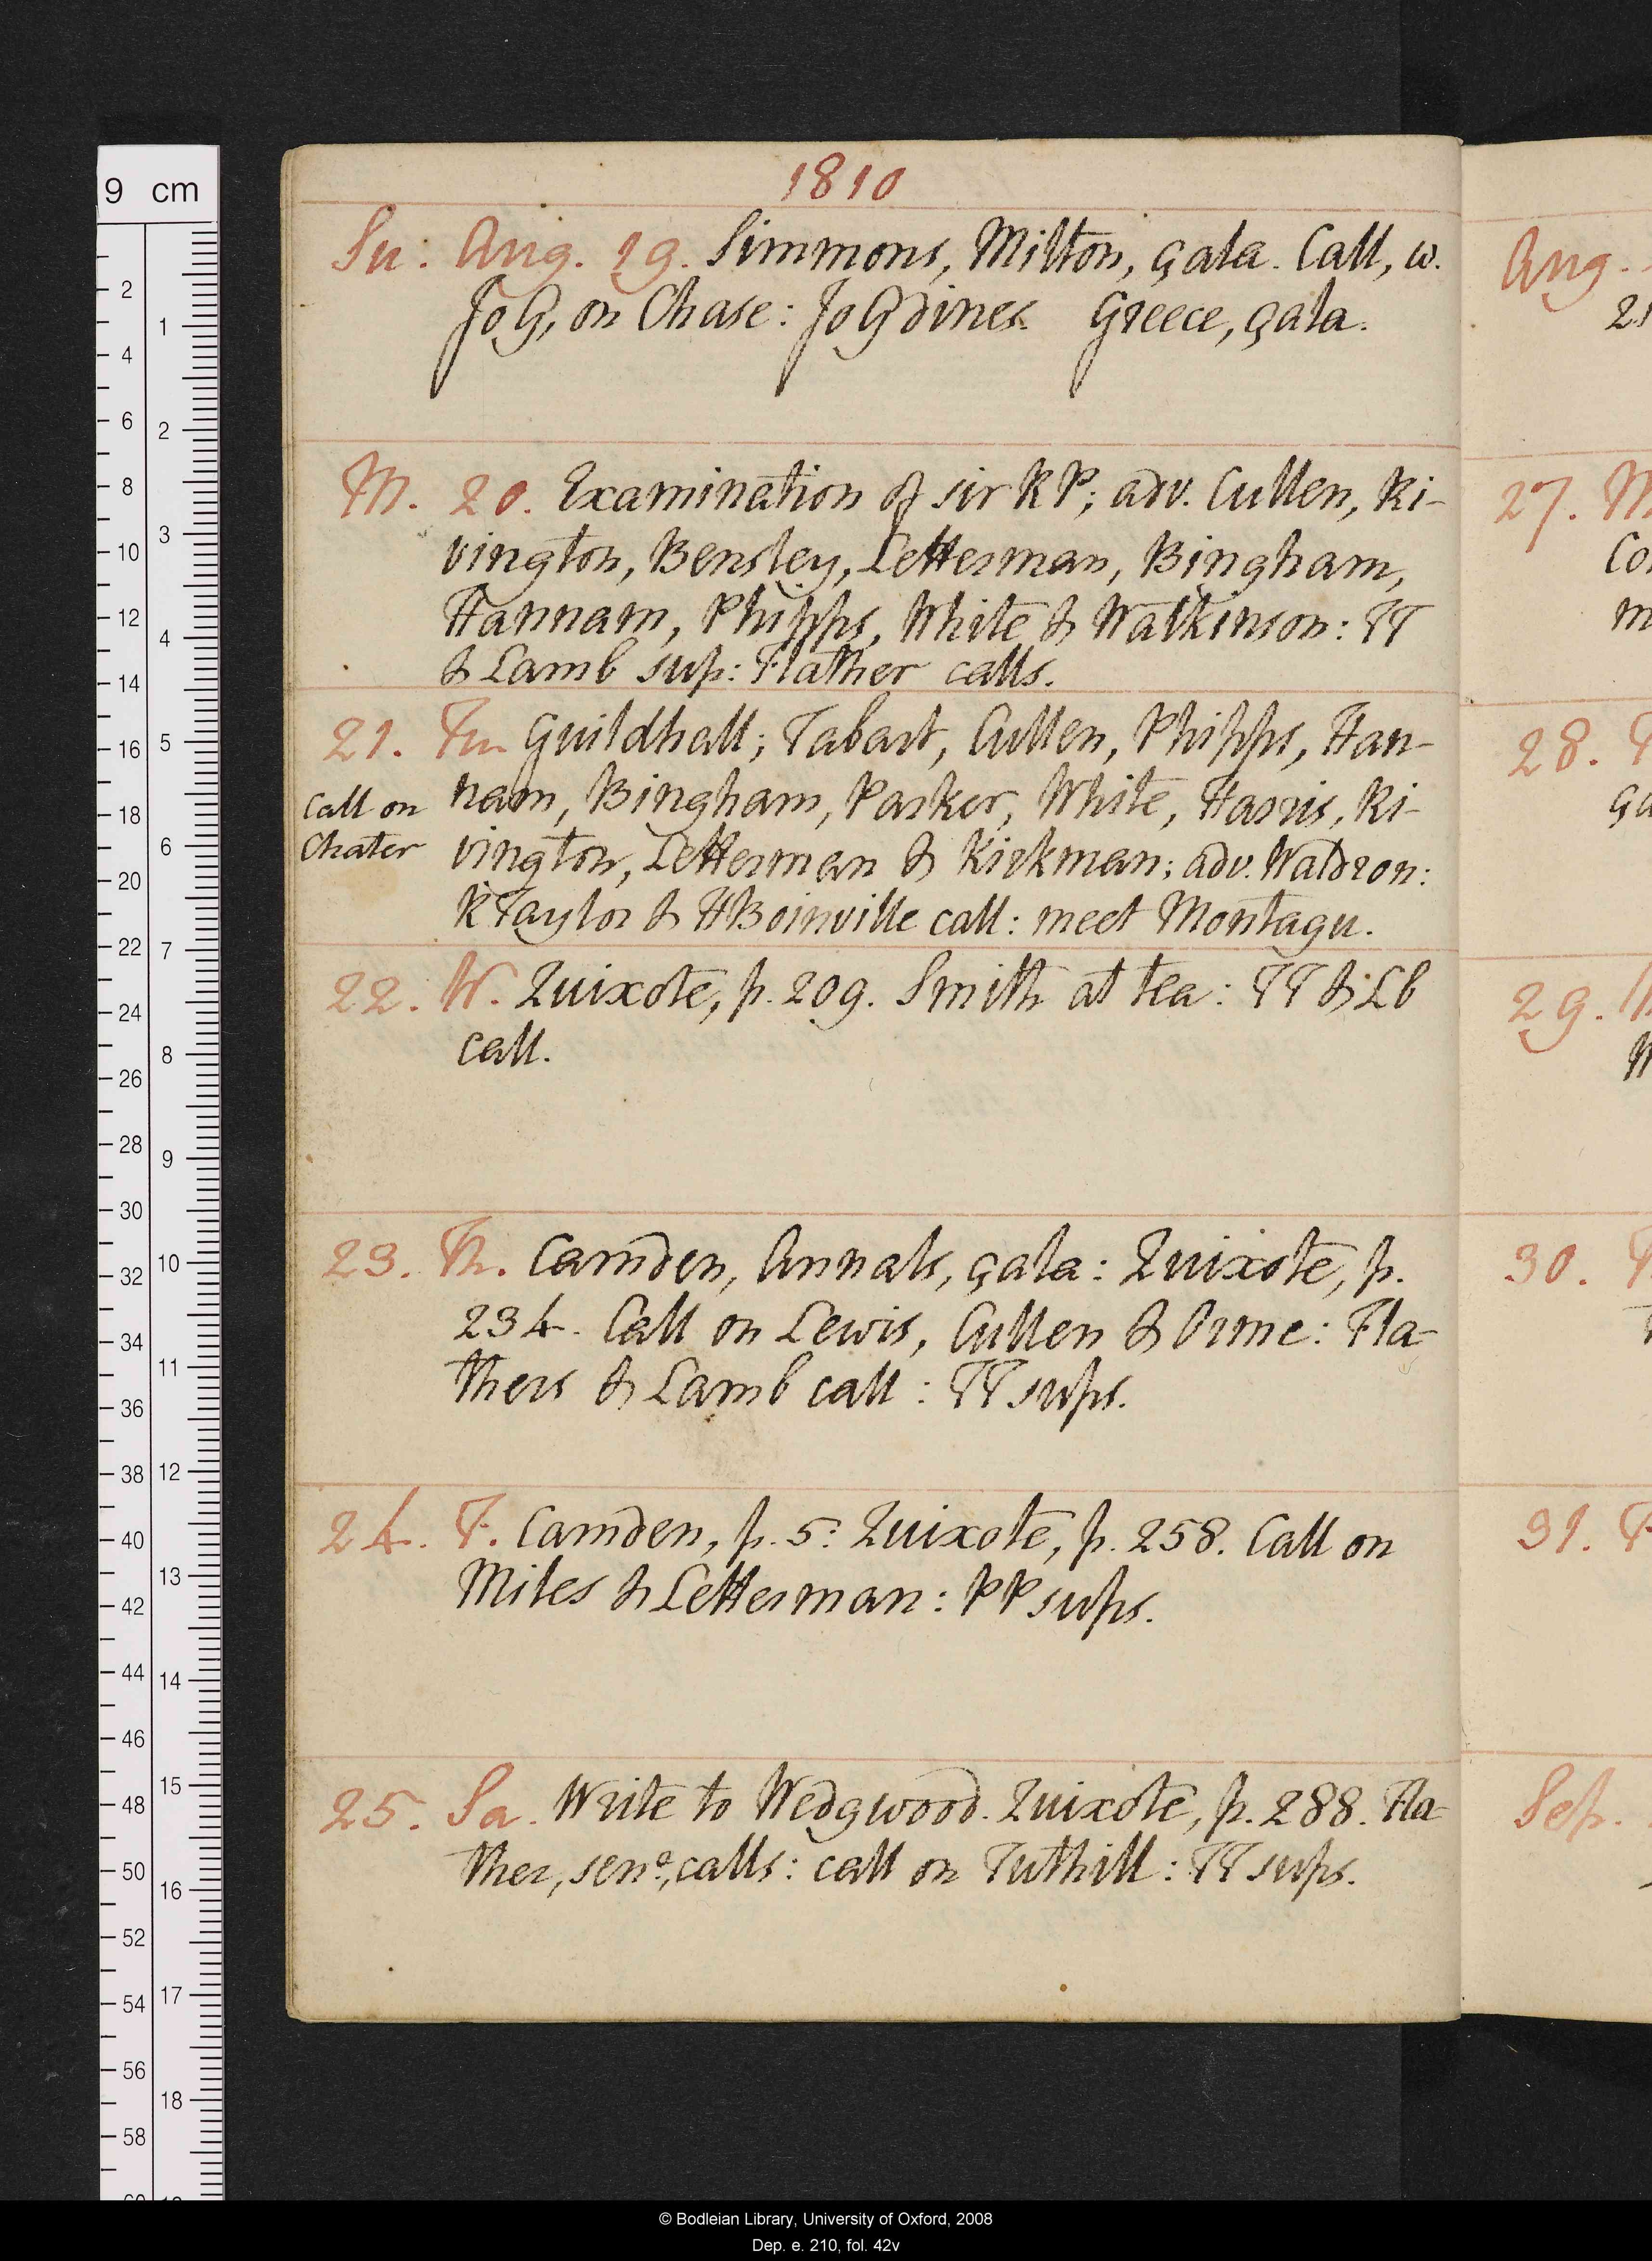 1810
Su. Aug. 19. Simmons, Milton, çala. Call, w.
JoG, on Chase: JoG dines. Greece, çala.
M. 20. Examination of sir RP; adv. Cullen, Ri-
vington, Bensley, Letterman, Bingham,
Hannam, Phipps, White & Watkinson: TT
& Lamb sup: Flather calls.
21. Tu. Guildhall; Tabart, Cullen, Phipps, Han-
Call on
Chater
nam, Bingham, Parker, White, Harris, Ri-
vington, Letterman & Kirkman; adv. Waldron:
R Taylor & H Boinville call: meet Montagu.
22. W. Quixote, p. 209. Smith at tea: TT & Lb
call.
23. Th. Camden, Annals, çala: Quixote, p.
234. Call on Lewis, Cullen & Orme: Fla-
thers & Lamb call: TT sups.
24. F. Camden, p. 5: Quixote, p. 258. Call on
Miles & Letterman: PP sups.
25. Sa. Write to Wedgwood. Quixote, p. 288. Fla-
ther, senr, calls: call on Tuthill: TT sups.
Aug.
27. M
Co
28.
29.
30.
31. F
Sep.
9 cm
2 4 6 8 10 12 14 16 18 20 22 24 26 28 30 32 34 36 38 40 42 44 46 48 50 52 54 56 58
1 2 3 4 5 6 7 8 9 10 11 12 13 14 15 16 17 18
© Bodleian Library, University of Oxford, 2008
Dep. e. 210, fol. 42v